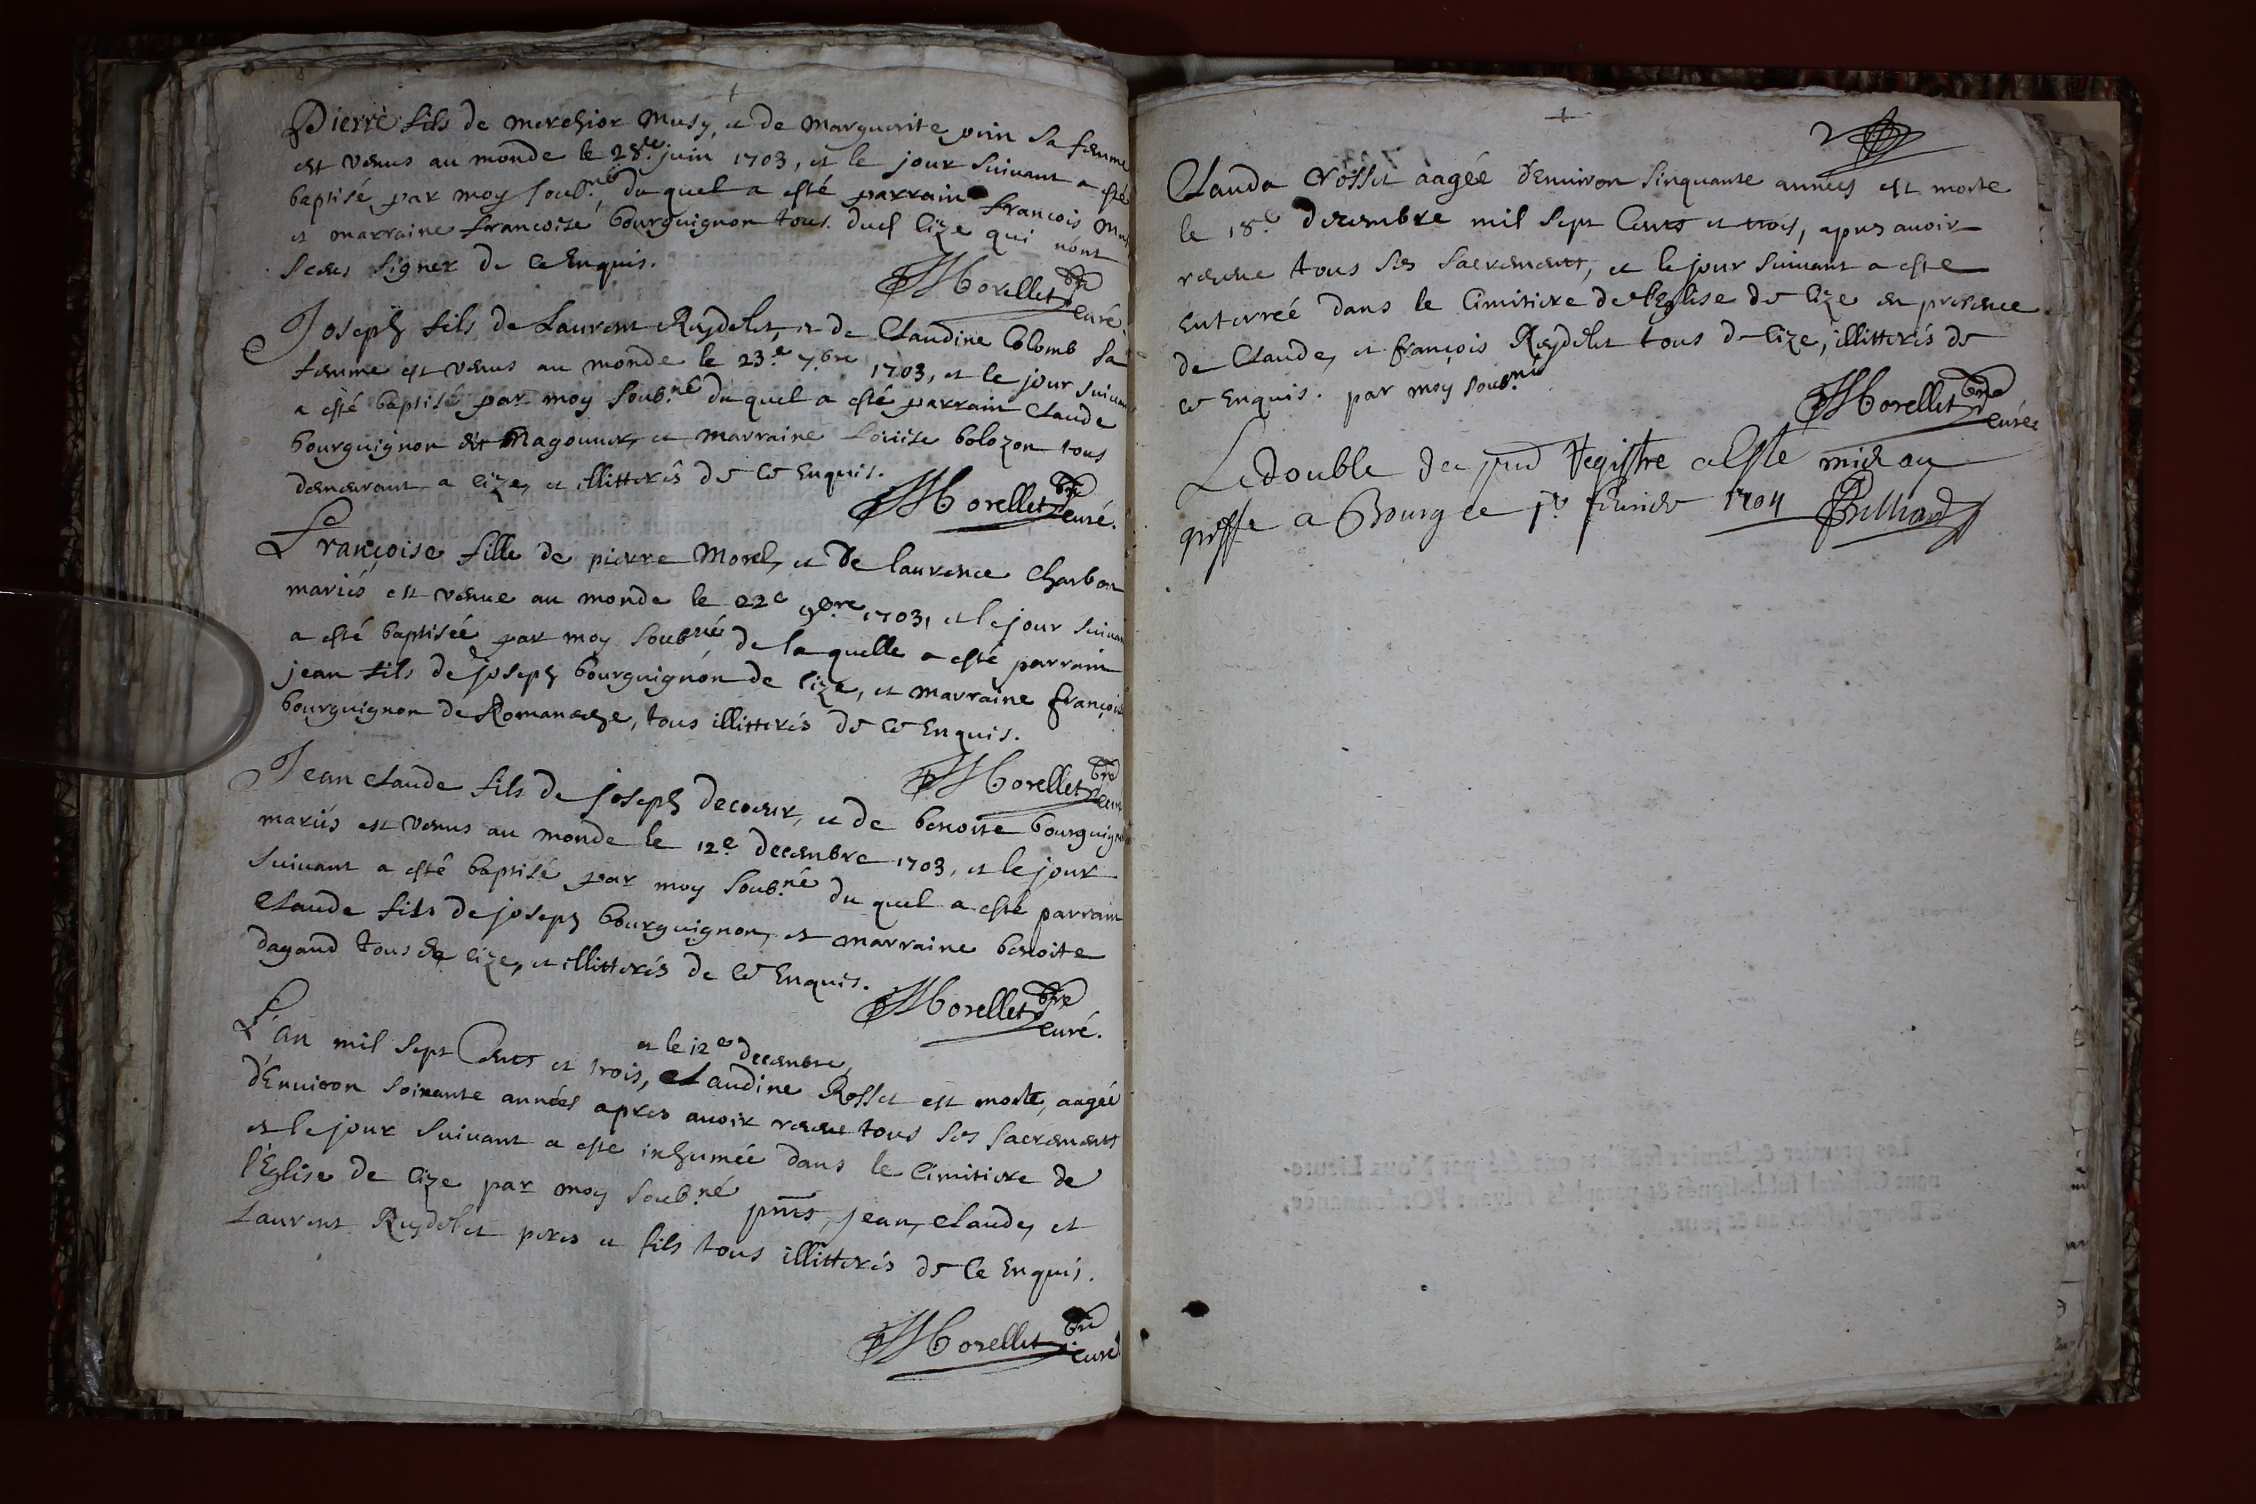 +
Pierre fils de merchior Musy, et de Marguerite join sa femme
est venus au monde le 28.e juin 1703, et le jour suivant a esté
baptisé par moy soub.né, du quel a esté parrain françois Mus
et marraine francoise bourguignon tous dud cize qui nont
sceus signer de ce Enquis.
Morellet pbre curé.
Joseph fils de Laurent Reydelet, et de Claudine Colomb sa
femme est venus au monde le 23.e 7.bre 1703, et le jour suivan
a esté baptisé par moy soub.né du quel a esté parrain Claude
bourguignon dit Magonnier, et marraine Louise bolozon tous
demeurant a cize, et illitterés de ce Enquis.
Morellet pbre curé.
Françoise fille de pierre Morel, et de laurence Charbon
mariés est venue au monde le 22e 9bre 1703, et le jour suivan
a esté baptisée par moy soubné, de la quelle a esté parrain
jean fils de joseph bourguignon de cize, et marraine françois
bourguignon de Romaneche, tous illitterés de ce Enquis.
Morellet pbre curé
Jean claude fils de joseph decoeur, et de benoite bourguign
mariés est venus au monde le 12e decembre 1703, et le jour
suivant a esté baptisé par moy soub.né du quel a esté parrain
Claude fils de joseph bourguignon, et marraine benoite
dagand tous de cize, et illitterés de ce Enquis.
Morellet pbre curé.
et le 12e decembre,
L'an mil sept Cents et trois, Claudine Rosset est morte, aagée
d'Environ soixante années apres avoir receue tous ses sacrements
et le jour suivant a esté inhumée dans le Cimitiere de
l'Eglise de cize par moy soub.né pnts, jean, claude, et
Laurent Reydelet peres et fils tous illitterés de ce Enquis.
Morellet pbre curé
+
2
Clauda Crosset aagée d'Environ sinquante années est morte
le 18.e decembre mil sept Cents et trois, apres avoir
receue tous ses sacrements, et le jour suivant a esté
Enterreé dans le Cimitiere de l'Eglise de cize en presence
de Claude, et françois Reydelet tous de cize, illitterés de
ce Enquis. par moy soub.né
Morellet pbre curé
Le double du pnt Registre a Esté mis au
greffe a Bourg ce fevrier 1704